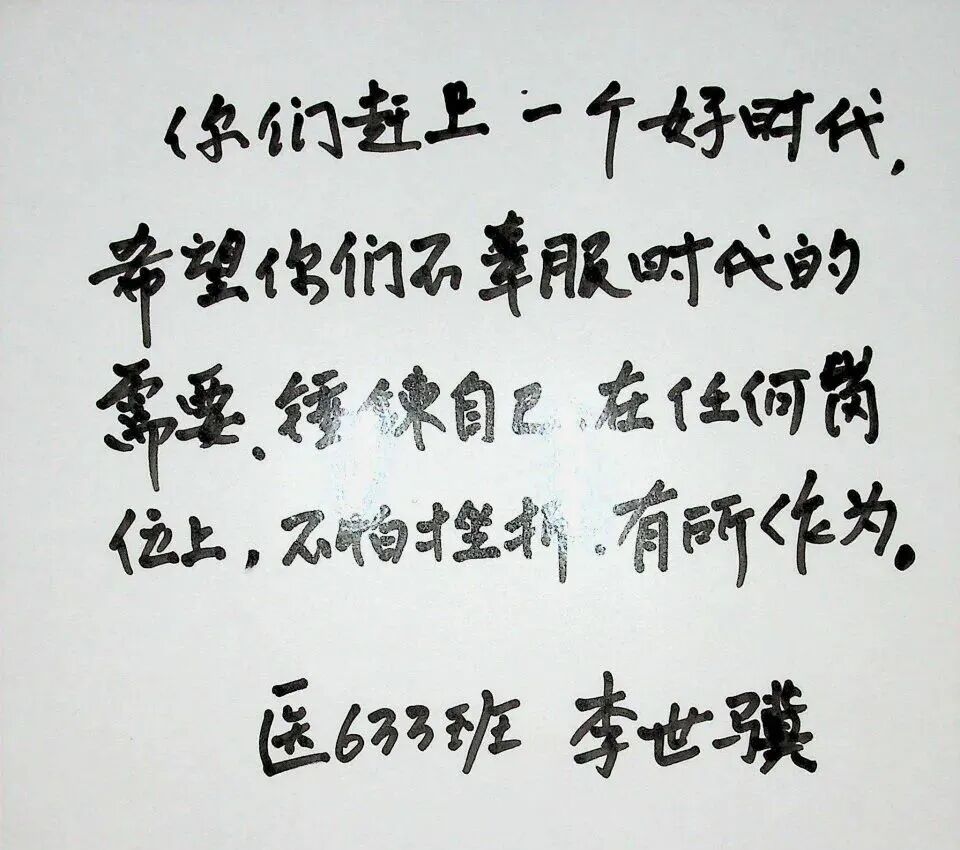 你们赶上一个好时代,
希望你们不辜服时代的
需要、锤鍊自己、在任何岗
位上,不怕挫折.有所作为。
医633班 李世骥